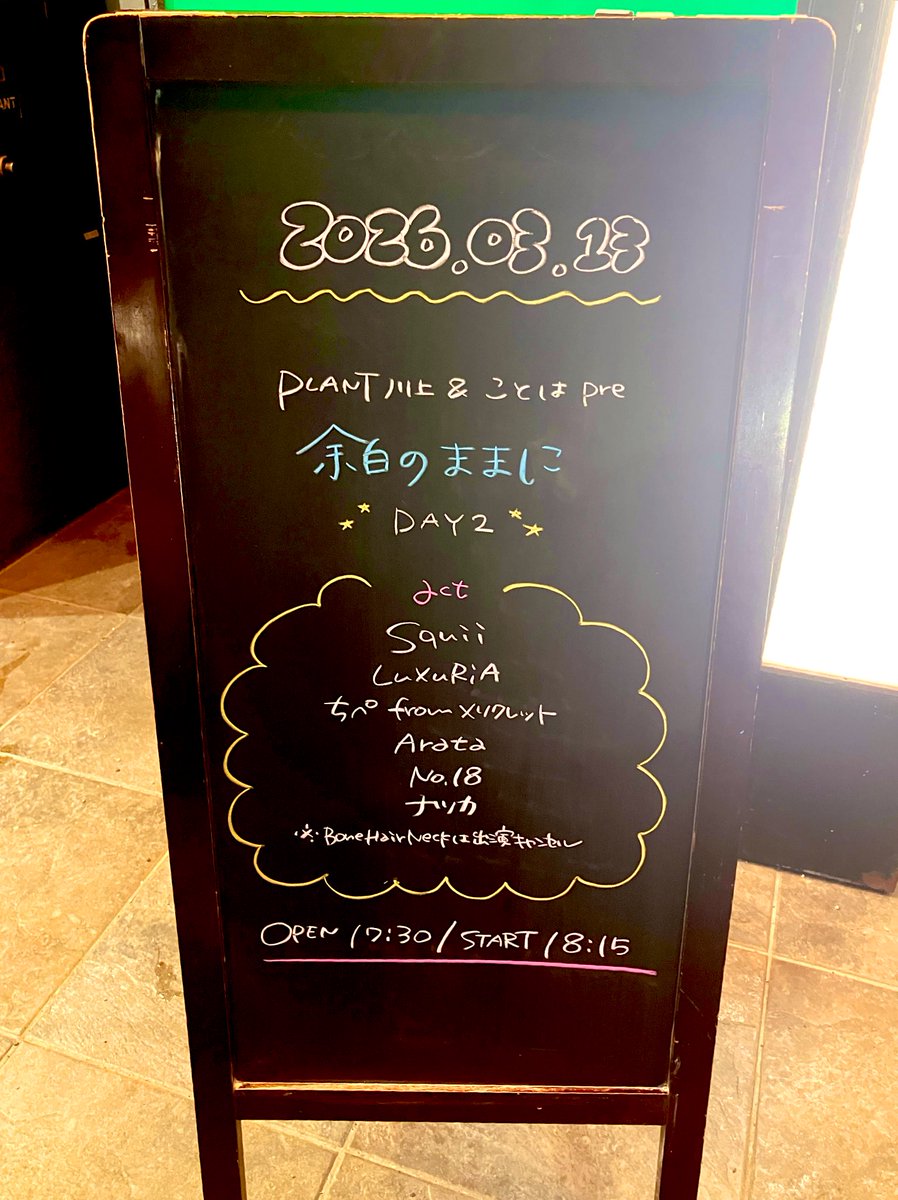 2026.03.13
PLANT川上 & ことは pre
余白のままに
DAY2
act
Squii
LuxuRiA
ちぺ from メリクレット
Arata
No.18
ナツカ
※BoneHairNeckは出演キャンセル
OPEN 17:30 / START 18:15
ANT